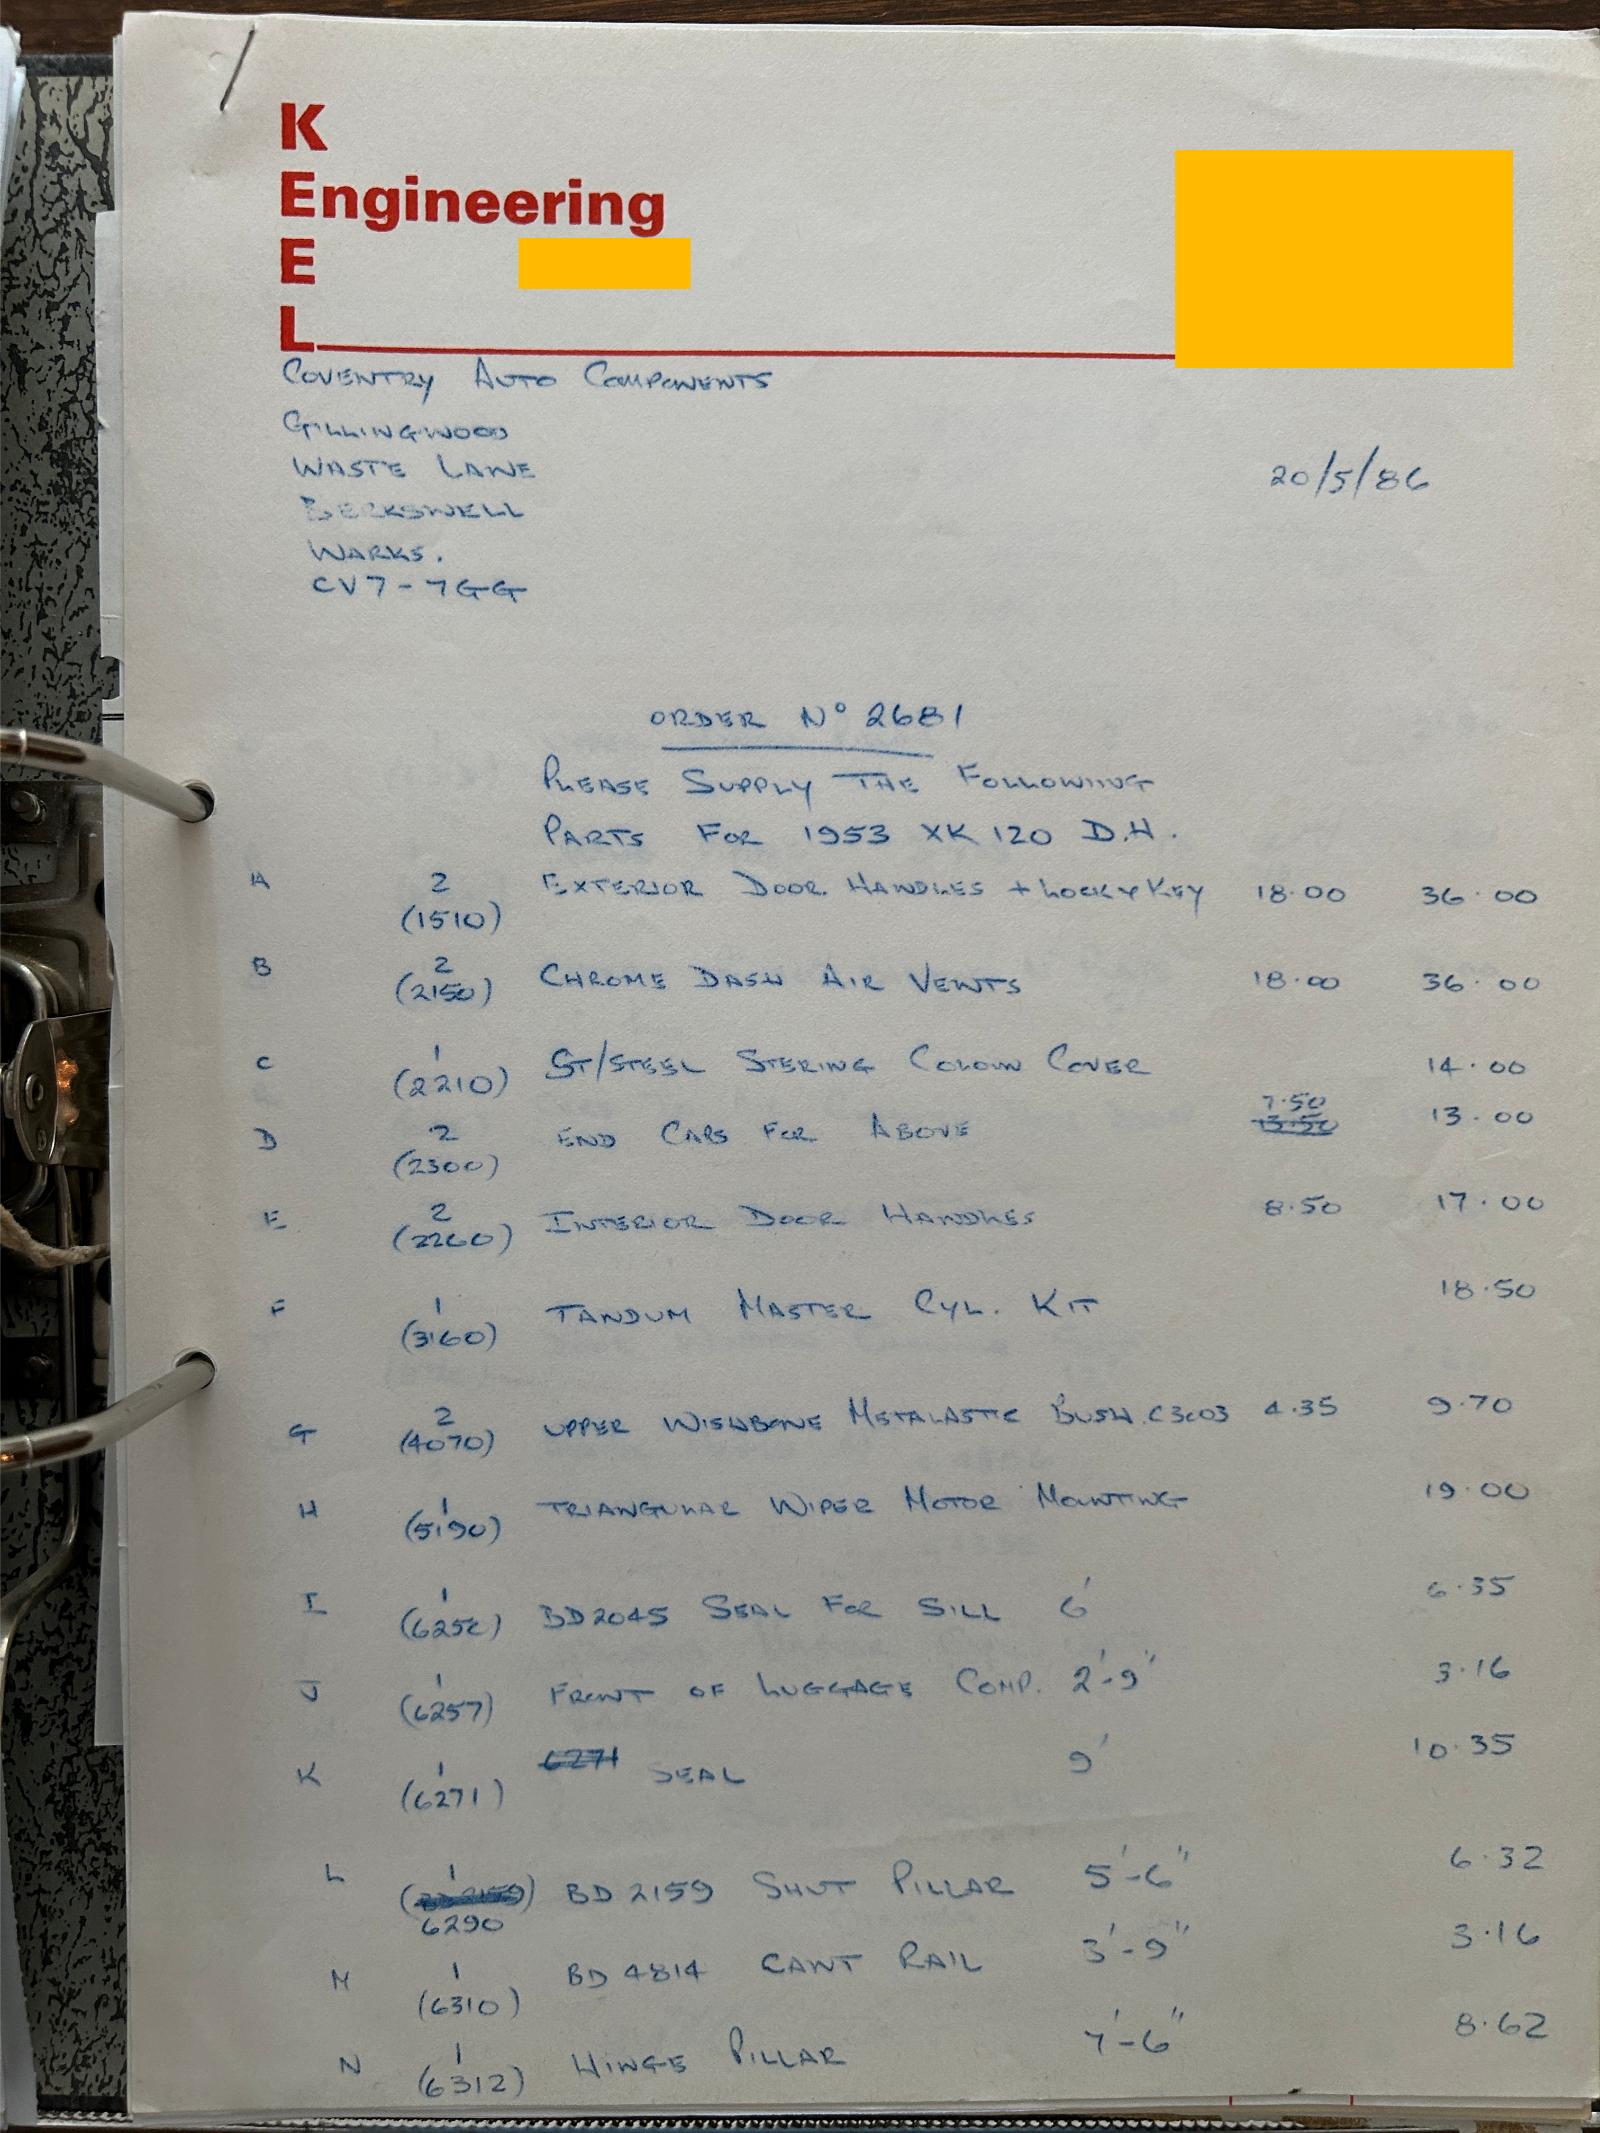 K
Engineering
E
L
COVENTRY AUTO COMPONENTS
GILLINGWOOD
WASTE LANE
BERKSWELL
WARKS.
CV7-7GG
20/5/86
ORDER Nº 2681
PLEASE SUPPLY THE FOLLOWIING
PARTS FOR 1953 XK 120 D.H.
A 2 EXTERIOR DOOR HANDLES + LOCK & KEY 18.00 36.00
(1510)
B 2 CHROME DASH AIR VENTS 18.00 36.00
(2150)
C 1 ST/STEEL STERING COLOUN COVER 14.00
(2210)
7.50
D 2 END CAPS FOR ABOVE 13.50 13.00
(2300)
E 2 INTERIOR DOOR HANDLES 8.50 17.00
(2260)
F 1 TANDUM MASTER CYL. KIT 18.50
(3160)
G 2 UPPER WISHBONE METALASTIC BUSH. C3003 4.35 9.70
(4070)
H 1 TRIANGULAR WIPER MOTOR MOUNTING 19.00
(5190)
I 1 BD2045 SEAL FOR SILL 6' 6.35
(6250)
J 1 FRONT OF LUGGAGE COMP. 2'-9" 3.16
(6257)
K 1 6271 SEAL 9' 10.35
(6271)
L 1 BD 2159 SHUT PILLAR 5'-6" 6.32
(BD 2159)
6290
M 1 BD 4814 CANT RAIL 3'-9" 3.16
(6310)
N 1 HINGE PILLAR 7'-6" 8.62
(6312)